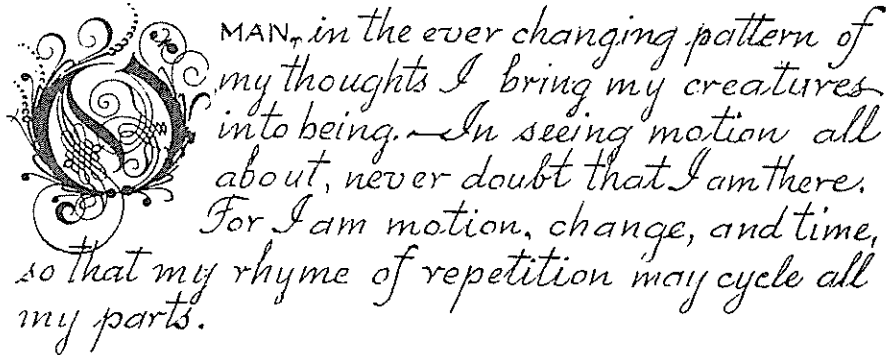 O MAN, in the ever changing pattern of
my thoughts I bring my creatures
into being. — In seeing motion all
about, never doubt that I am there.
For I am motion, change, and time,
so that my rhyme of repetition may cycle all
my parts.